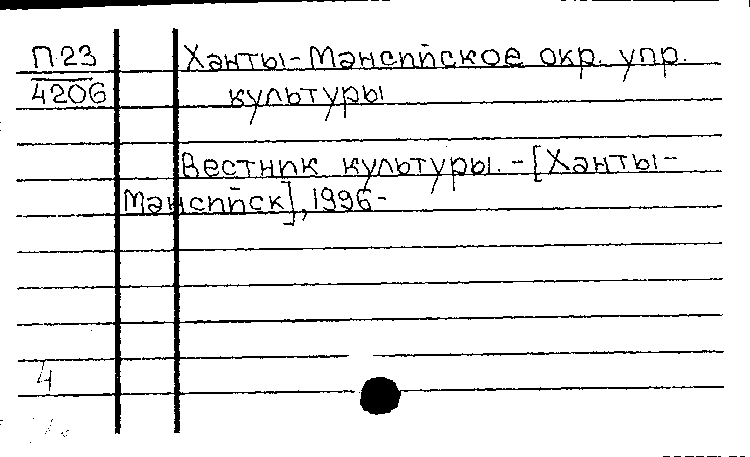 П23 Ханты-Мансийское окр. упр.
4206 культуры
Вестник культуры. - [Ханты-
Мансийск], 1996-
4